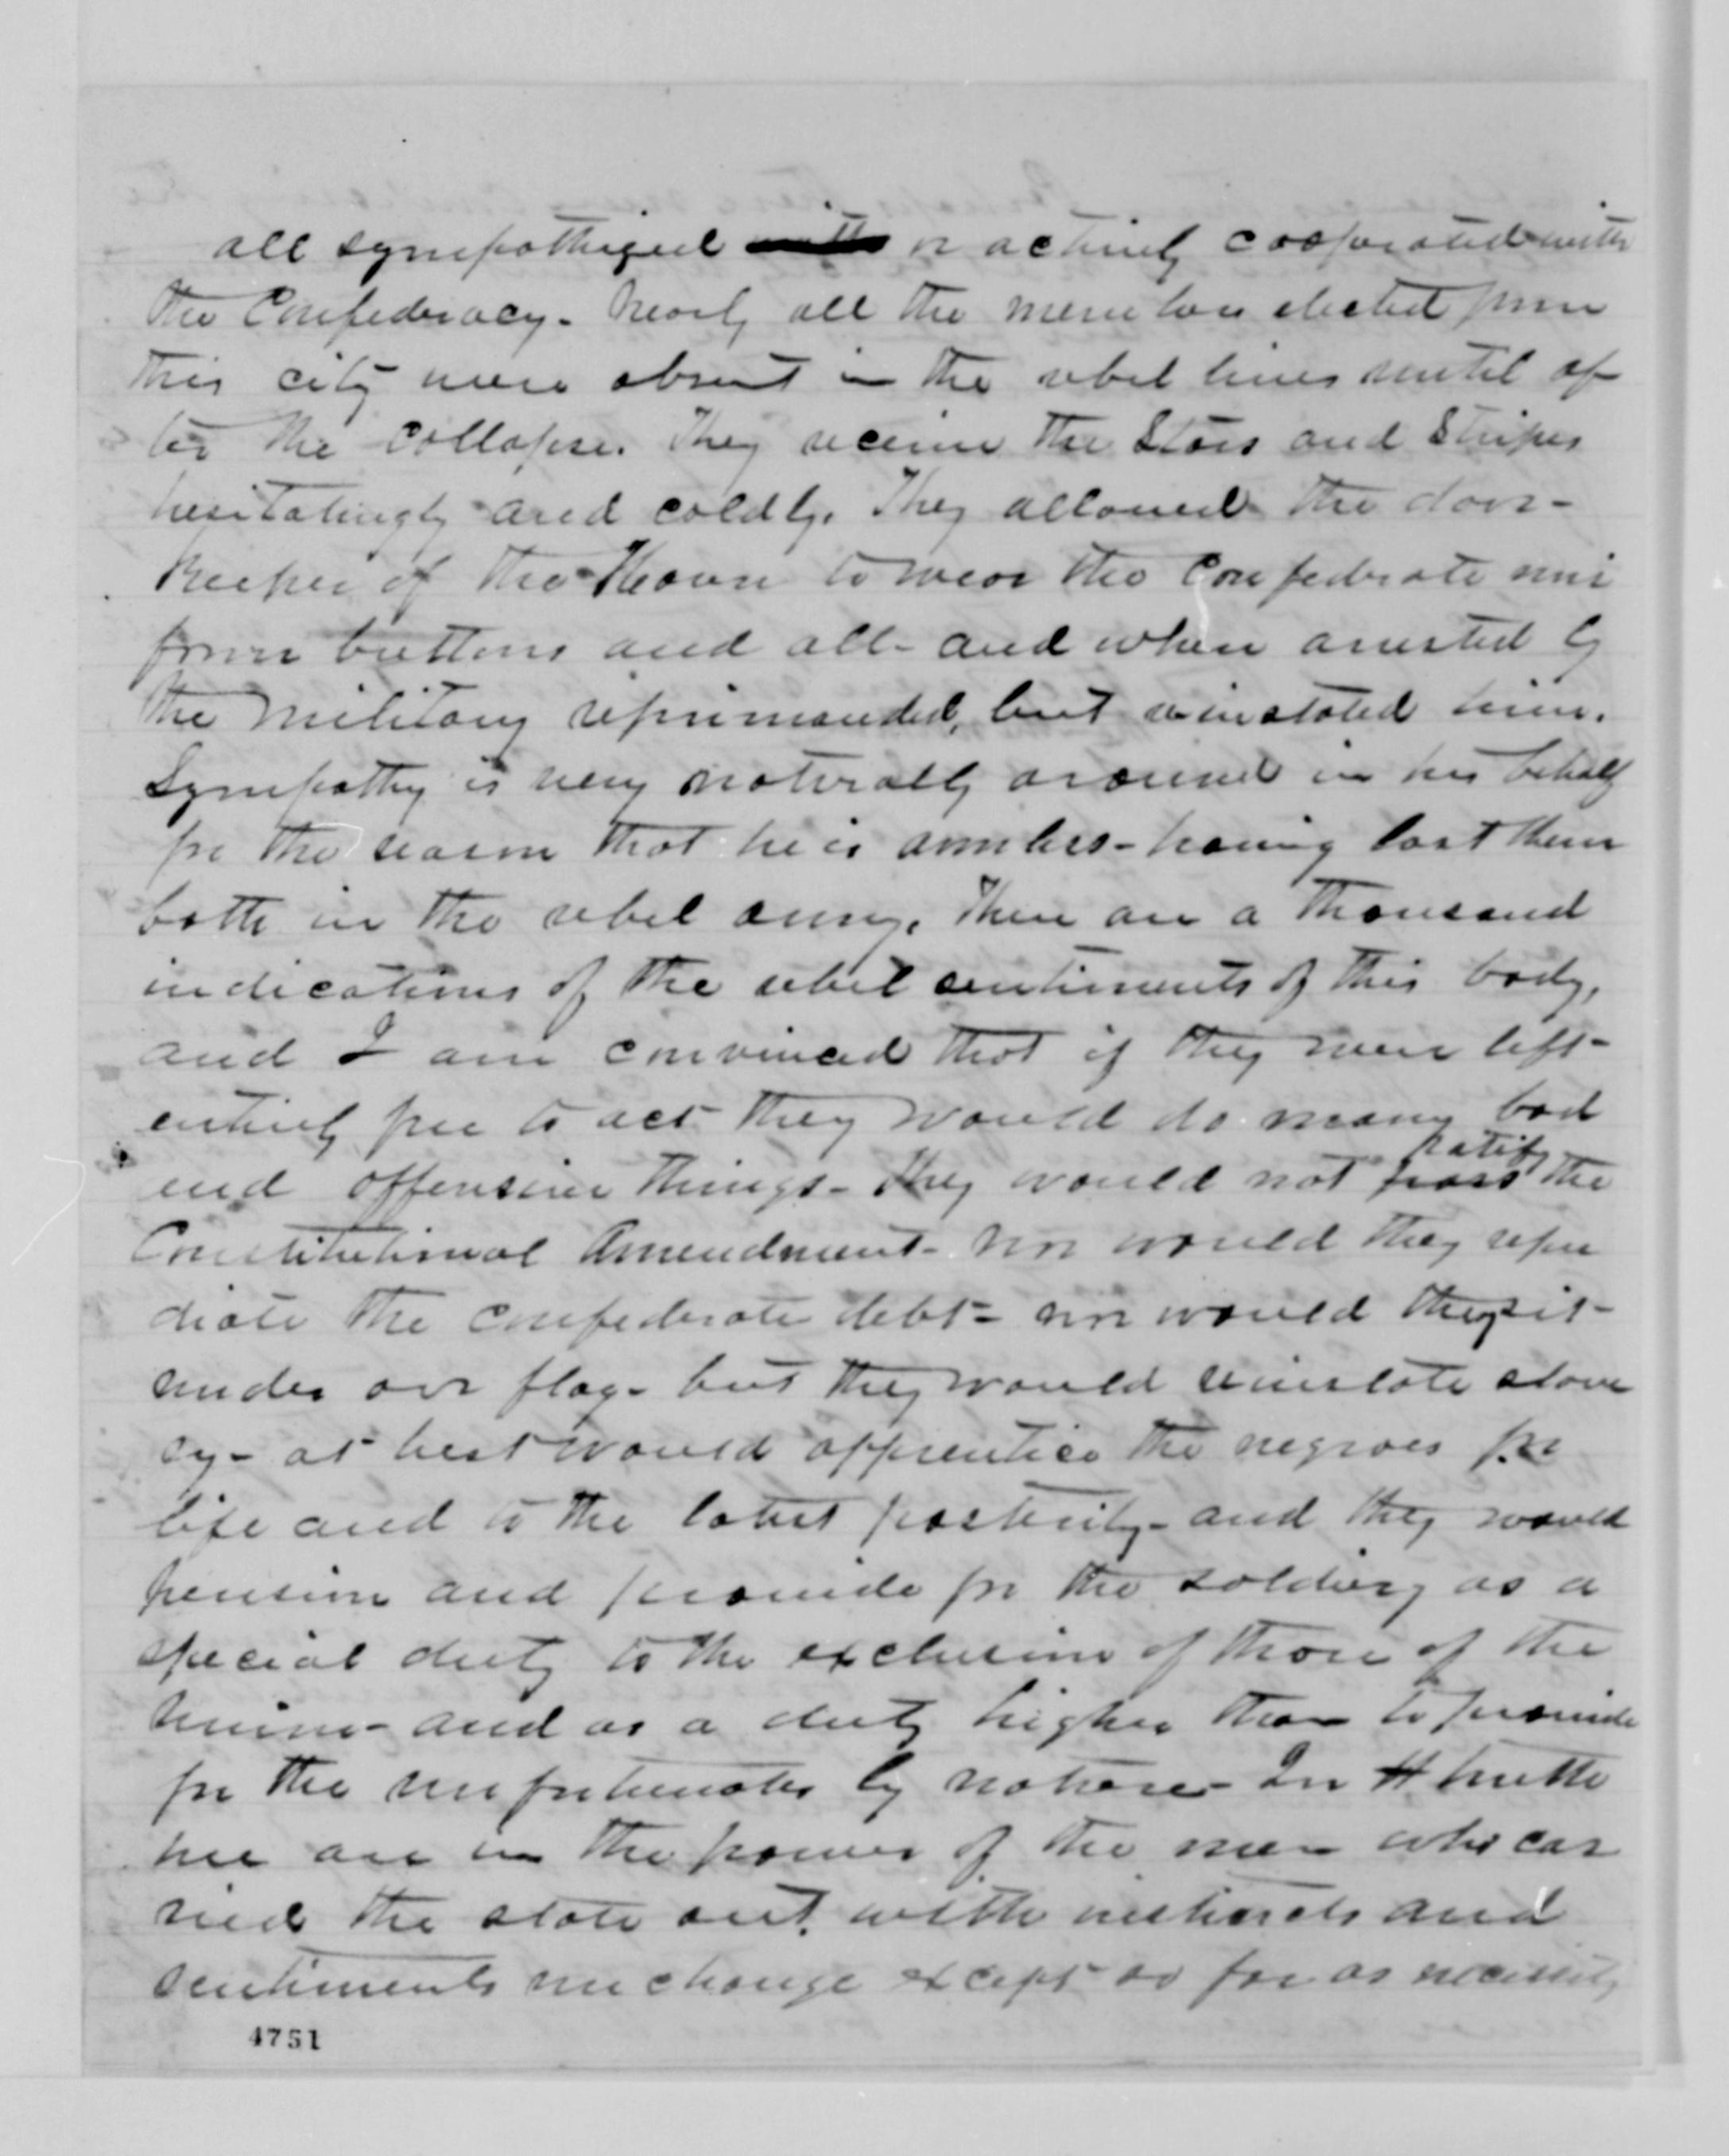 all sympathized with or actively cooperated with
the Confederacy. Nearly all the members elected from
this city were absent in the rebel lines until af
ter the collapse. They receive the Stars and Stripes
hesitatingly and coldly. They allowed the door-
keeper of the House to wear the Confederate uni
form buttons and all - and when arrested by
the military reprimanded, but reinstated him.
Sympathy is very naturally aroused in his behalf
for the reason that he is armless - having lost them
both in the rebel army. There are a thousand
indications of the rebel sentiments of this body,
and I am convinced that if they were left
entirely free to act they would do many bad
and offensive things - They would not pass ratify the
Constitutional Amendment - nor would they repu
diate the confederate debt - nor would they sit
under our flag - but they would reinstate slave
ry - at best would apprentice the negroes for
life and to the latest posterity - and they would
pension and provide for the soldiery as a
special duty to the exclusion of those of the
Union - and as a duty higher than to provide
for the unfortunates by nature - In truth
we are in the power of the men who car
ried the state out, with instincts and
sentiments unchange except as far as necessity
4751